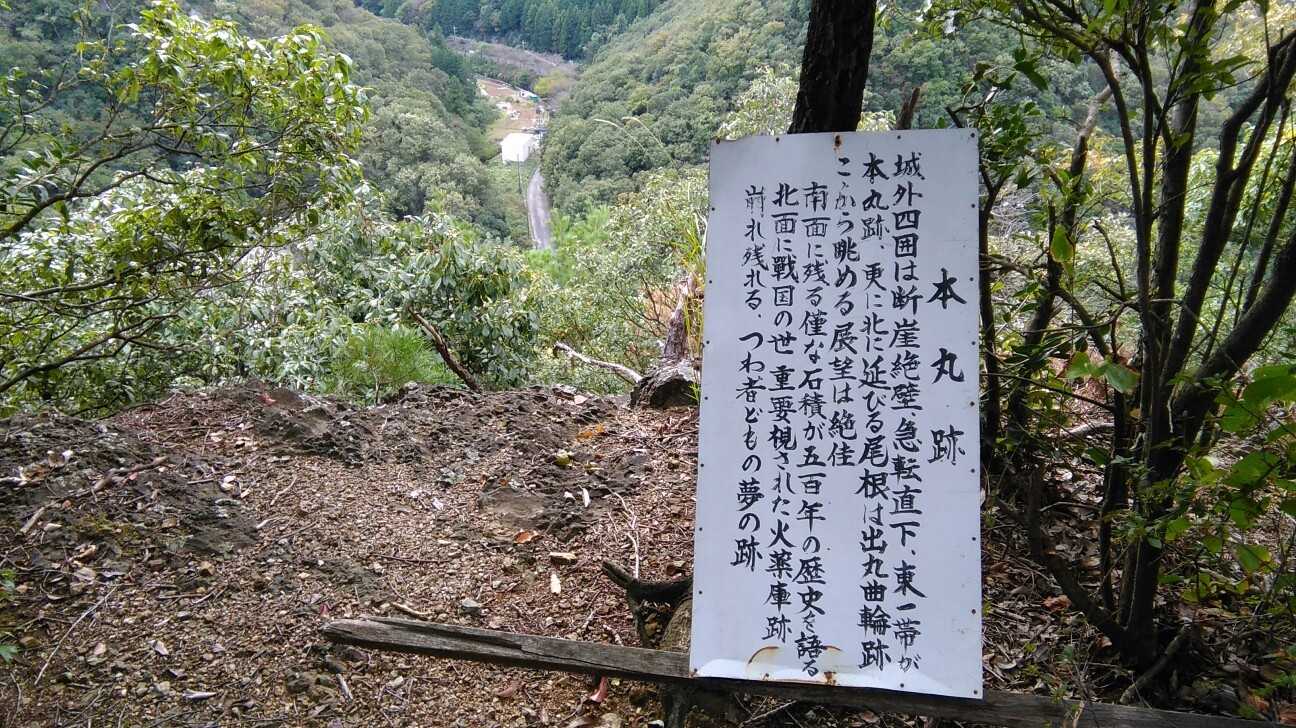 本丸跡
城外四囲は断崖絶壁、急転直下、東一帯が
本丸跡、更に北に延びる尾根は出丸曲輪跡
こゝから眺める展望は絶佳
南面に残る僅な石積が五百年の歴史を語る
北面に戦国の世重要視された火薬庫跡
崩れ残れる、つわ者どもの夢の跡